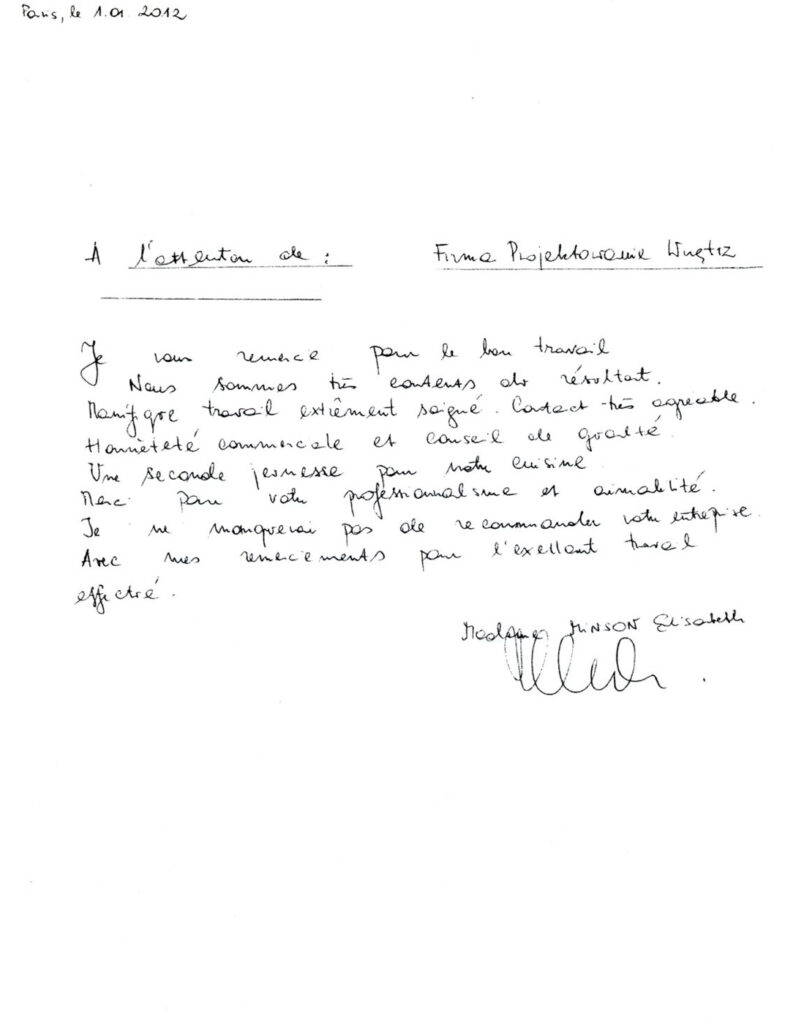 Paris, le 1.01.2012
A l'attention de : Firma Projektowanie Wnętrz
Je vous remercie pour le bon travail
Nous sommes très contents du résultat.
Manifique travail extrêment soigné. Contact très agréable.
Honnêteté commercale et conseil de qualté.
Une seconde jeunesse pour notre cuisine
Merci pour votre professionnalisme et aimabilité.
Je ne manquerai pas de recommander votre entreprise.
Avec mes remerciements pour l'exellant travail
effectué.
MINSON Elisabeth